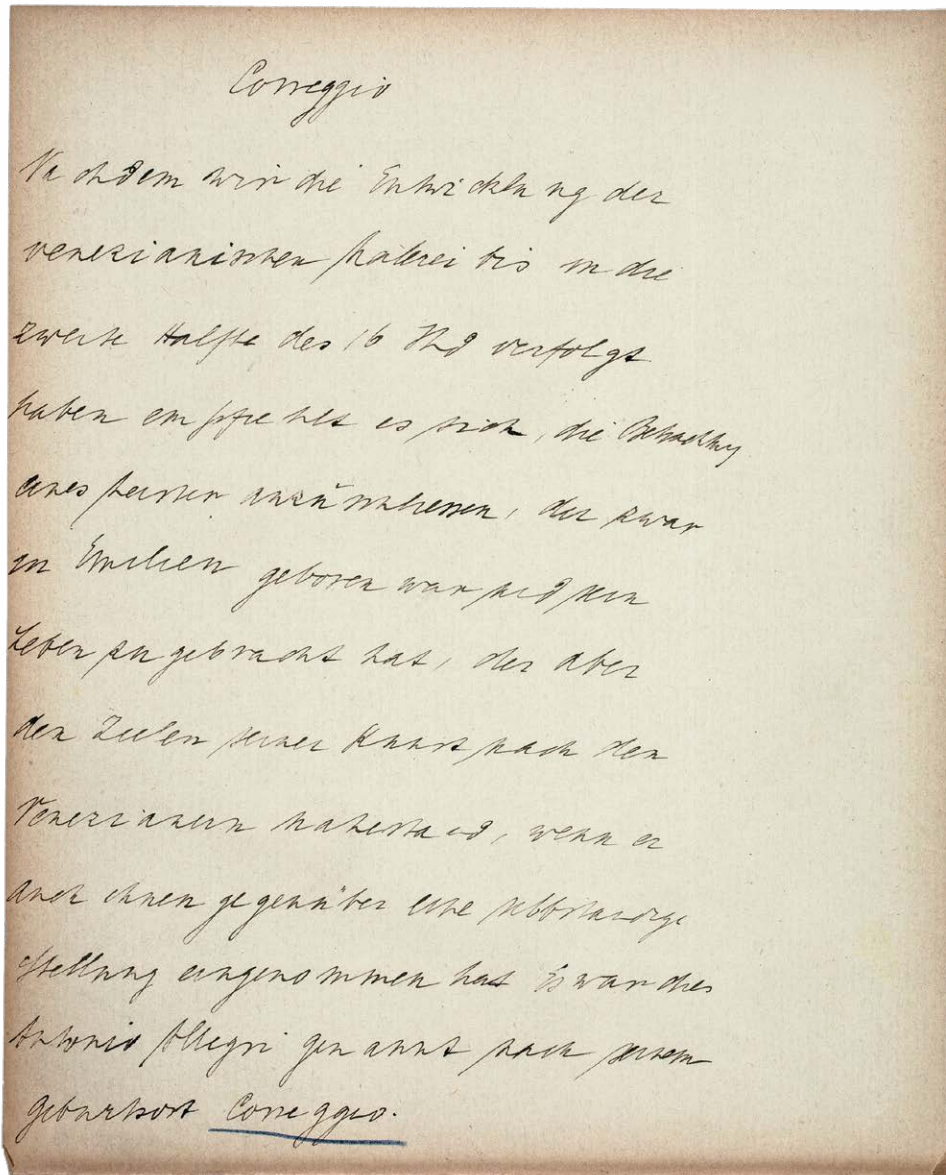 Correggio
Nachdem wir die Entwicklung der
venezianischen Malerei bis in die
zweite Hälfte des 16 Jhd verfolgt
haben empfiehlt es sich, die Betrachtung
eines Meisters anzuschliessen, der zwar
in Emilien geboren war und sein
Leben zugebracht hat, der aber
den Zielen seiner Kunst nach den
Venezianern nahestand, wenn er
auch ihnen gegenüber eine selbständige
Stellung eingenommen hat Es war dies
Antonio Allegri genannt nach seinem
Geburtsort Correggio.